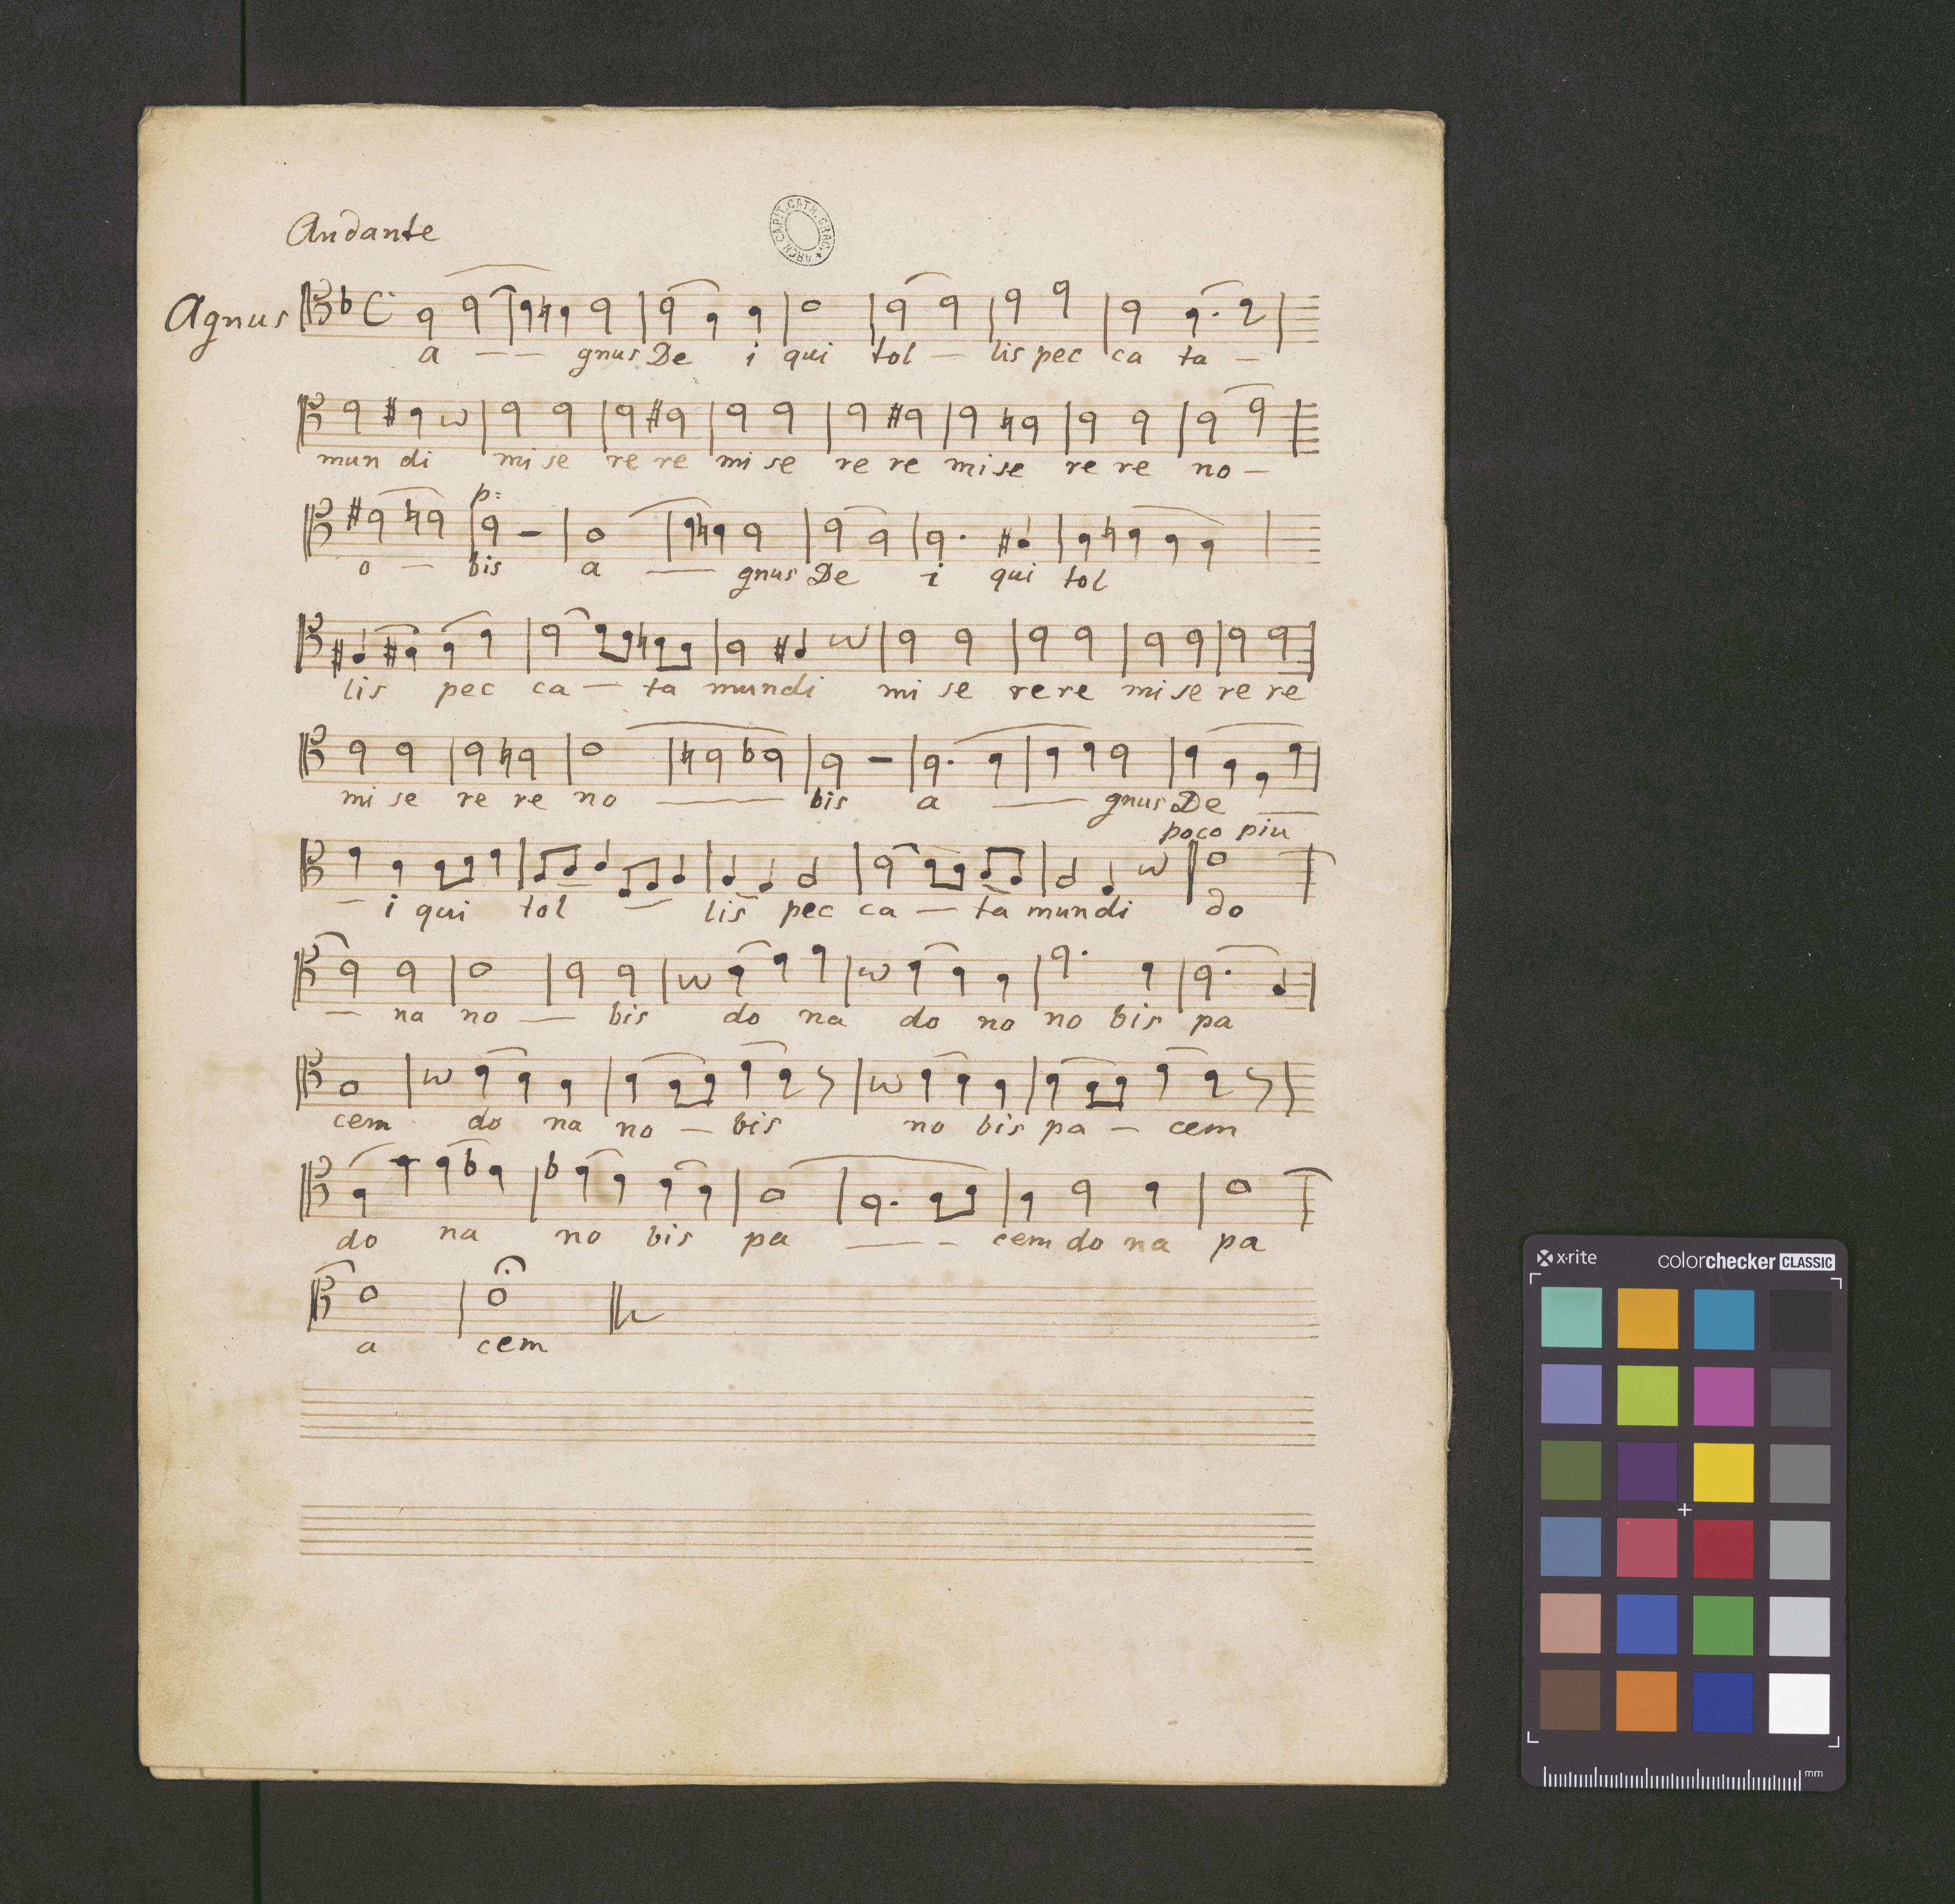 Andante
ARCH. CAPIT. CATH. CRAC.
Agnus
a — — gnus De i qui tol — lis pec ca ta —
mun di mi se re re mi se re re mi se re re no —
p:
o — bis a — gnus De i qui tol
lis pec ca — ta mundi mi se re re mi se re re
mi se re re no — bis a — gnus De —
poco più
— i qui tol — lis pec ca — ta mundi do
— na no — bis do na do no no bis pa
cem do na no — bis no bis pa — cem
do na no bis pa — - cem do na pa
a cem
x·rite colorchecker CLASSIC
mm